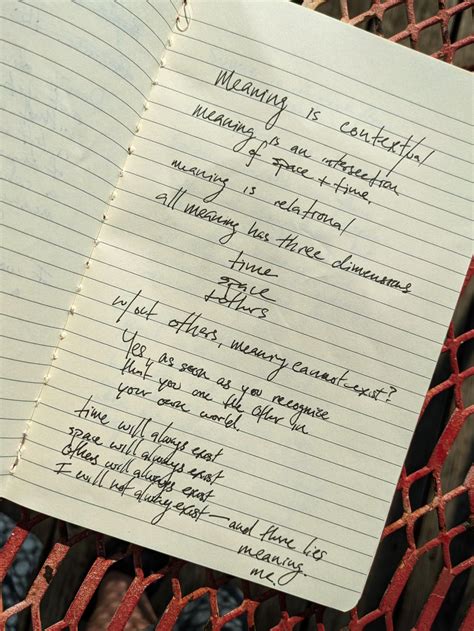 Meaning is contextual
meaning is an intersection
of space + time.
meaning is relational
all meaning has three dimensions
time
space
+ others
w/out others, meaning cannot exist?
Yes, as soon as you recognize
that you are the other in
your own world.
time will always exist
space will always exist
others will always exist
I will not always exist — and there lies
meaning.
me.